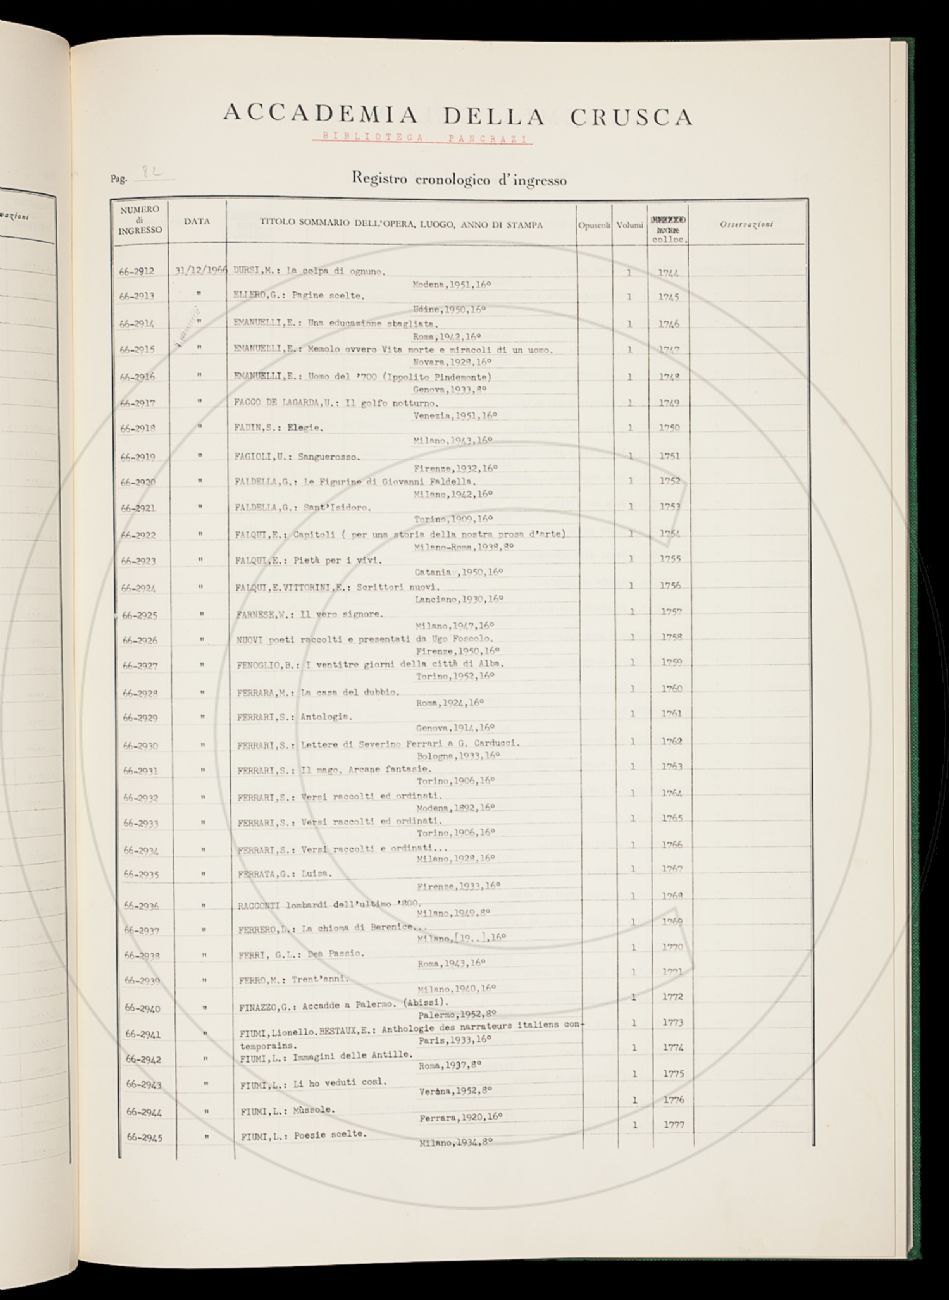 ACCADEMIA DELLA CRUSCA
BIBLIOTECA PANCRAZI
Pag. 82
Registro cronologico d'ingresso
NUMERO di INGRESSO DATA TITOLO SOMMARIO DELL'OPERA, LUOGO, ANNO DI STAMPA Opuscoli Volumi colloc. Osservazioni
66-2912 31/12/1966 DURSI,M.: La colpa di ognuno. 1 1744
Modena,1951,16°
66-2913 " ELLERO,G.: Pagine scelte. 1 1745
Udine,1950,16°
66-2914 " EMANUELLI,E.: Una educazione sbagliata. 1 1746
Roma,1942,16°
66-2915 " EMANUELLI,E.: Memolo ovvero Vita morte e miracoli di un uomo. 1 1747
Novara,1928,16°
66-2916 " EMANUELLI,E.: Uomo del '700 (Ippolito Pindemonte) 1 1748
Genova,1933,8°
66-2917 " FACCO DE LAGARDA,U.: Il golfo notturno. 1 1749
Venezia,1951,16°
66-2918 " FADIN,S.: Elegie. 1 1750
Milano,1943,16°
66-2919 " FAGIOLI,U.: Sanguerosso. 1 1751
Firenze,1932,16°
66-2920 " FALDELLA,G.: Le Figurine di Giovanni Faldella. 1 1752
Milano,1942,16°
66-2921 " FALDELLA,G.: Sant'Isidoro. 1 1753
Torino,1909,16°
66-2922 " FALQUI,E.: Capitoli ( per una storia della nostra prosa d'arte) 1 1754
Milano-Roma,1938,8°
66-2923 " FALQUI,E.: Pietà per i vivi. 1 1755
Catania ,1950,16°
66-2924 " FALQUI,E.VITTORINI,E.: Scrittori nuovi. 1 1756
Lanciano,1930,16°
66-2925 " FARNESE,W.: Il vero signore. 1 1757
Milano,1947,16°
66-2926 " NUOVI poeti raccolti e presentati da Ugo Foscolo. 1 1758
Firenze,1950,16°
66-2927 " FENOGLIO,B.: I ventitre giorni della città di Alba. 1 1759
Torino,1952,16°
66-2928 " FERRARA,M.: La casa del dubbio. 1 1760
Roma,1924,16°
66-2929 " FERRARI,S.: Antologia. 1 1761
Genova,1914,16°
66-2930 " FERRARI,S.: Lettere di Severino Ferrari a G. Carducci. 1 1762
Bologna,1933,16°
66-2931 " FERRARI,S.: Il mago. Arcane fantasie. 1 1763
Torino,1906,16°
66-2932 " FERRARI,S.: Versi raccolti ed ordinati. 1 1764
Modena,1892,16°
66-2933 " FERRARI,S.: Versi raccolti ed ordinati. 1 1765
Torino,1906,16°
66-2934 " FERRARI,S.: Versi raccolti e ordinati... 1 1766
Milano,1928,16°
66-2935 " FERRATA,G.: Luisa. 1 1767
Firenze,1933,16°
66-2936 " RACCONTI lombardi dell'ultimo '800. 1 1768
Milano,1949,8°
66-2937 " FERRERO,L.: La chioma di Berenice... 1 1769
Milano,[19..],16°
66-2938 " FERRI, G.L.: Dea Passio. 1 1770
Roma,1943,16°
66-2939 " FERRO,M.: Trent'anni. 1 1771
Milano,1940,16°
66-2940 " FINAZZO,G.: Accadde a Palermo. (Abissi). 1 1772
Palermo,1952,8°
66-2941 " FIUMI,Lionello.BESTAUX,E.: Anthologie des narrateurs italiens con- 1 1773
temporains. Paris,1933,16°
66-2942 " FIUMI,L.: Immagini delle Antille. 1 1774
Roma,1937,8°
66-2943 " FIUMI,L.: Li ho veduti così. 1 1775
Verona,1952,8°
66-2944 " FIUMI,L.: Mùssole. 1 1776
Ferrara,1920,16°
66-2945 " FIUMI,L.: Poesie scelte. 1 1777
Milano,1934,8°